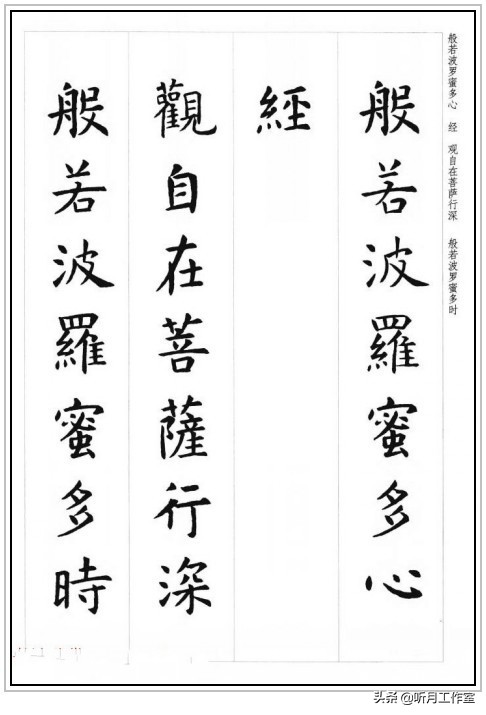 般若波罗蜜多心 经 观自在菩萨行深 般若波罗蜜多时
般若波羅蜜多心
經
觀自在菩薩行深
般若波羅蜜多時
头条@听月工作室